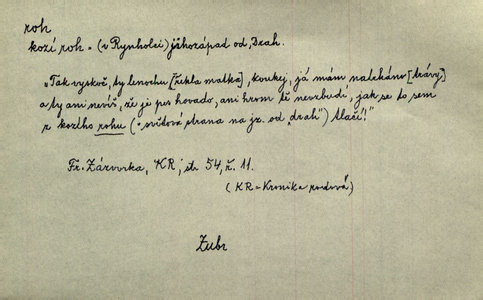 roh
kozí roh = (v Rynholci) jihozápad od "Drah.
"Tak vyskoč, ty lenochu [řekla matka], koukej, já mám nalekáno [trávy]
a ty ani nevíš, že je pes hovado, ani hrom tě nevzbudí, jak se to sem
z kozího rohu (= světová strana na jz. od "drah") tlačí!"
Fr. Zázvorka, KR, str 54, ř. 11.
(KR = Kronika rodová.)
Zubr